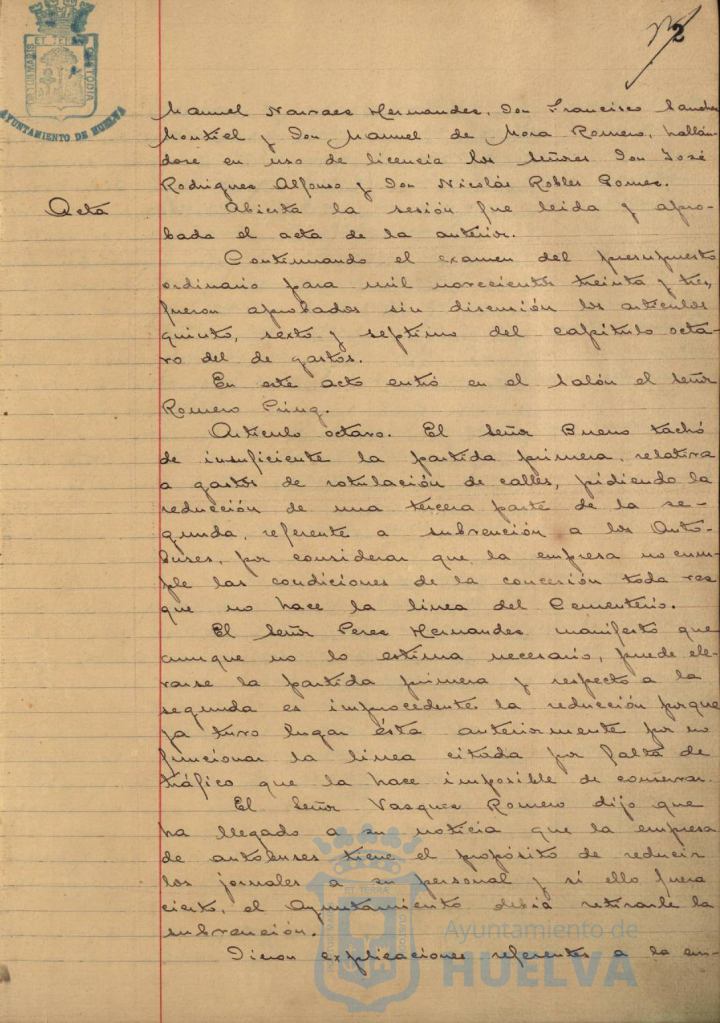 2
PORTUS MARIS ET TERRAE CUSTODIA
AYUNTAMIENTO DE HUELVA
Manuel Narvaez Hernandez, Don Francisco Sanchez
Montiel y Don Manuel de Mora Romero, hallán-
dose en uso de licencia los Señores Don José
Rodriguez Alfonso y Don Nicolás Robles Gomez.
Acta
Abierta la sesión fue leida y apro-
bada el acta de la anterior.
Continuando el examen del presupuesto
ordinario para mil novecientos treinta y tres,
fueron aprobados sin discusión los artículos
quinto, sexto y septimo del capítulo octa-
vo del de gastos.
En este acto entró en el Salón el Señor
Romero
Artículo octavo. El Señor Bueno tachó
de insuficiente la partida primera, relativa
a gastos de rotulación de calles, pidiendo la
reducción de una tercera parte de la se-
gunda, referente a subvención a los Auto-
buses, por considerar que la empresa no cum-
ple las condiciones de la concesión toda vez
que no hace la linea del Cementerio.
El Señor Perez Hernandez manifestó que
aunque no lo estima necesario, puede ele-
varse la partida primera y respecto a la
segunda es improcedente la reducción porque
ya tuvo lugar ésta anteriormente por no
funcionar la linea citada por falta de
tráfico que la hace imposible de conservar.
El Señor Vazquez Romero dijo que
ha llegado a su noticia que la empresa
de autobuses tiene el propósito de reducir
los jornales a su personal y si ello fuera
cierto, el Ayuntamiento debia retirarle la
subvención.
Dieron explicaciones referentes a la em-
Ayuntamiento de
HUELVA